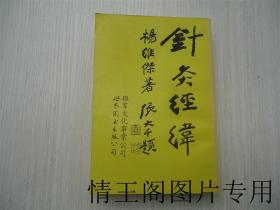 針灸經緯
楊維傑著
張大千題
樂群文化事業公司
世界图书出版公司
情王阁图片专用